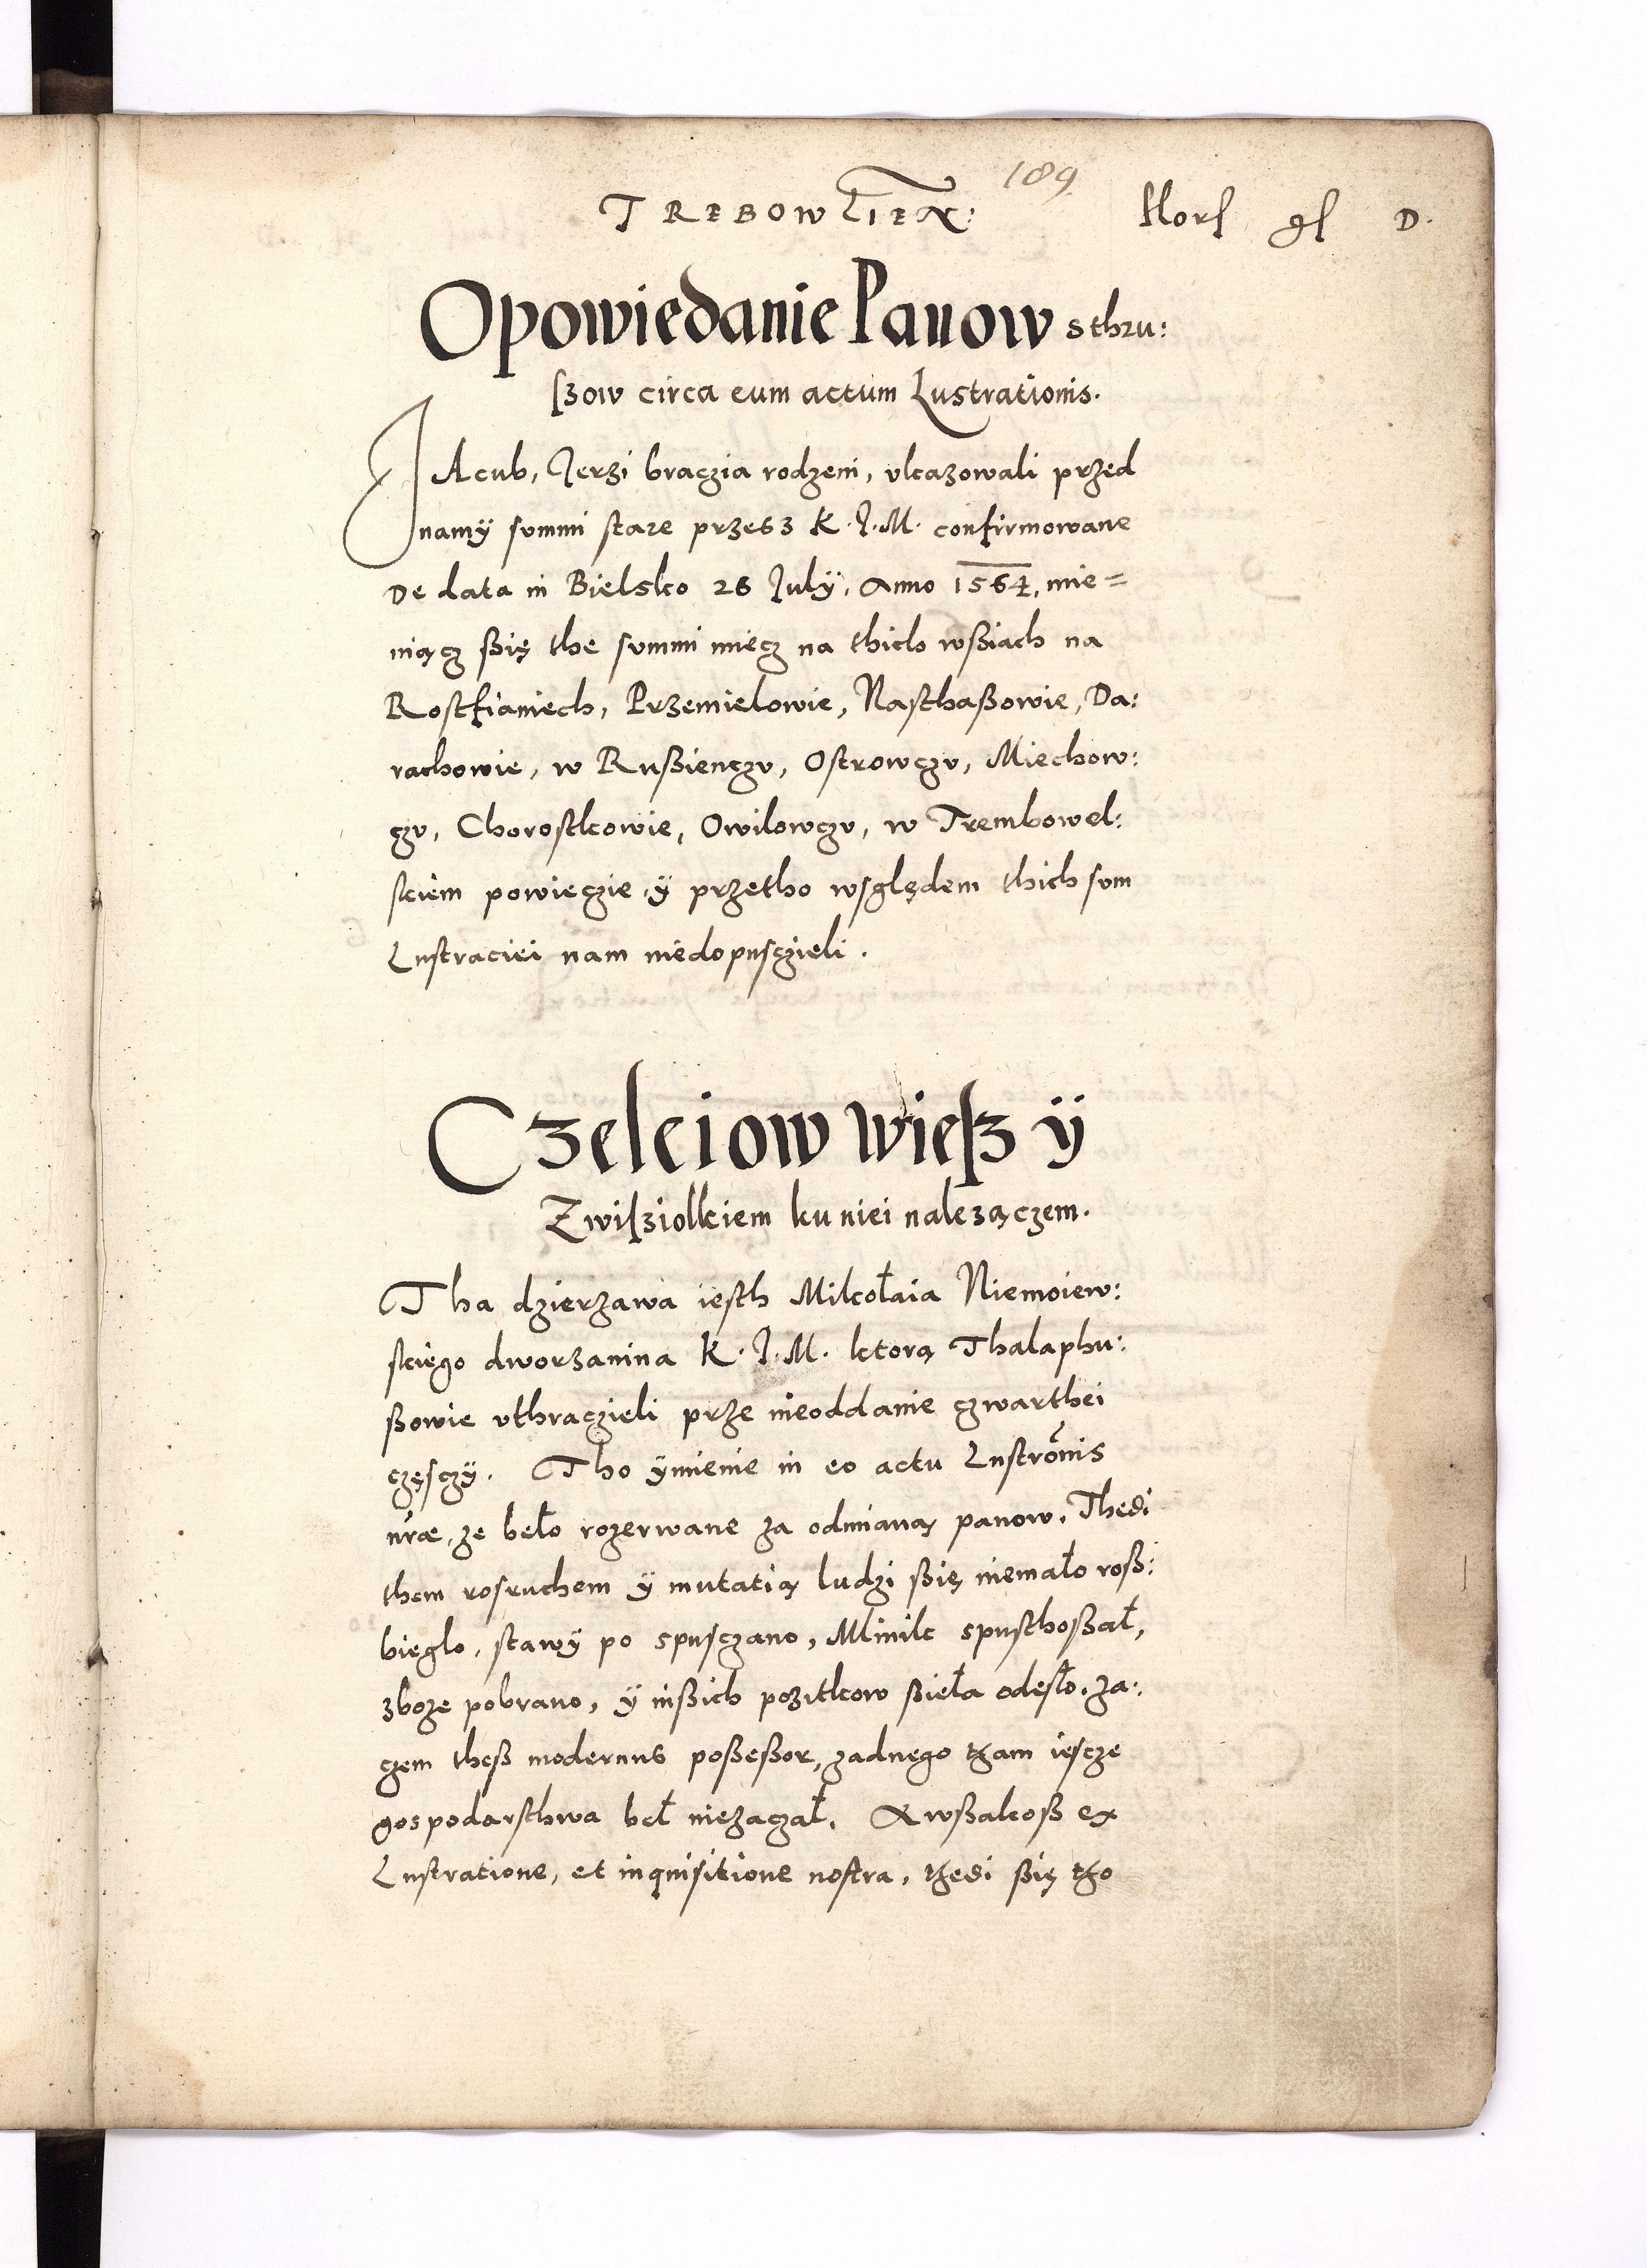 189
TREBOWLIEN: flor gr D.
Opowiedanie Panow sthru:
szow circa eum actum Lustrationis.
JAcub, Jerzi braczia rodzeni, vkazowali przed
namÿ summi stare przesz K. J. M. confirmowane
De data in Bielsko 26 Julÿ. Anno 1564, mie=
niącz ßię the summi miecz na thich wßiach na
Rostfianiech, Przemielowie, Nasthaßowie, Da:
rachowie, w Rußienczv, Ostrowczv, Miechow:
czv, Chorostkowie, Owilowczv, w Trembowel:
skiem powieczie, ÿ przetho wsględem thich sum
Lustraciei nam niedopusczieli.
Czekiow wiesz ÿ
Zwisziolkiem ku niei nalezączem.
Tha dzierzawa iesth Mikołaia Niemoiew:
skiego dworzanina K. J. M. ktorą Thalaphu:
ßowie vthraczieli prze nieoddanie czwarthei
częsczÿ. Tho ÿmienie in eo actu Lustrōnis
nr̄æ, ze beło rozerwane za odmianą panow. Thedi
them rosruchem ÿ mutatią ludzi ßię niemało roß:
bieglo, stawÿ po spusczano, Mlinik spusthoßał,
zboze pobrano, ÿ inßich pozitkow ßieła odesło. za:
czem theß modernus poßeßor, zadnego tham iescze
gospodarsthwa beł niezaczał. A wßakoß ex
Lustratione, et inquisitione nostra, thedi ßię tho